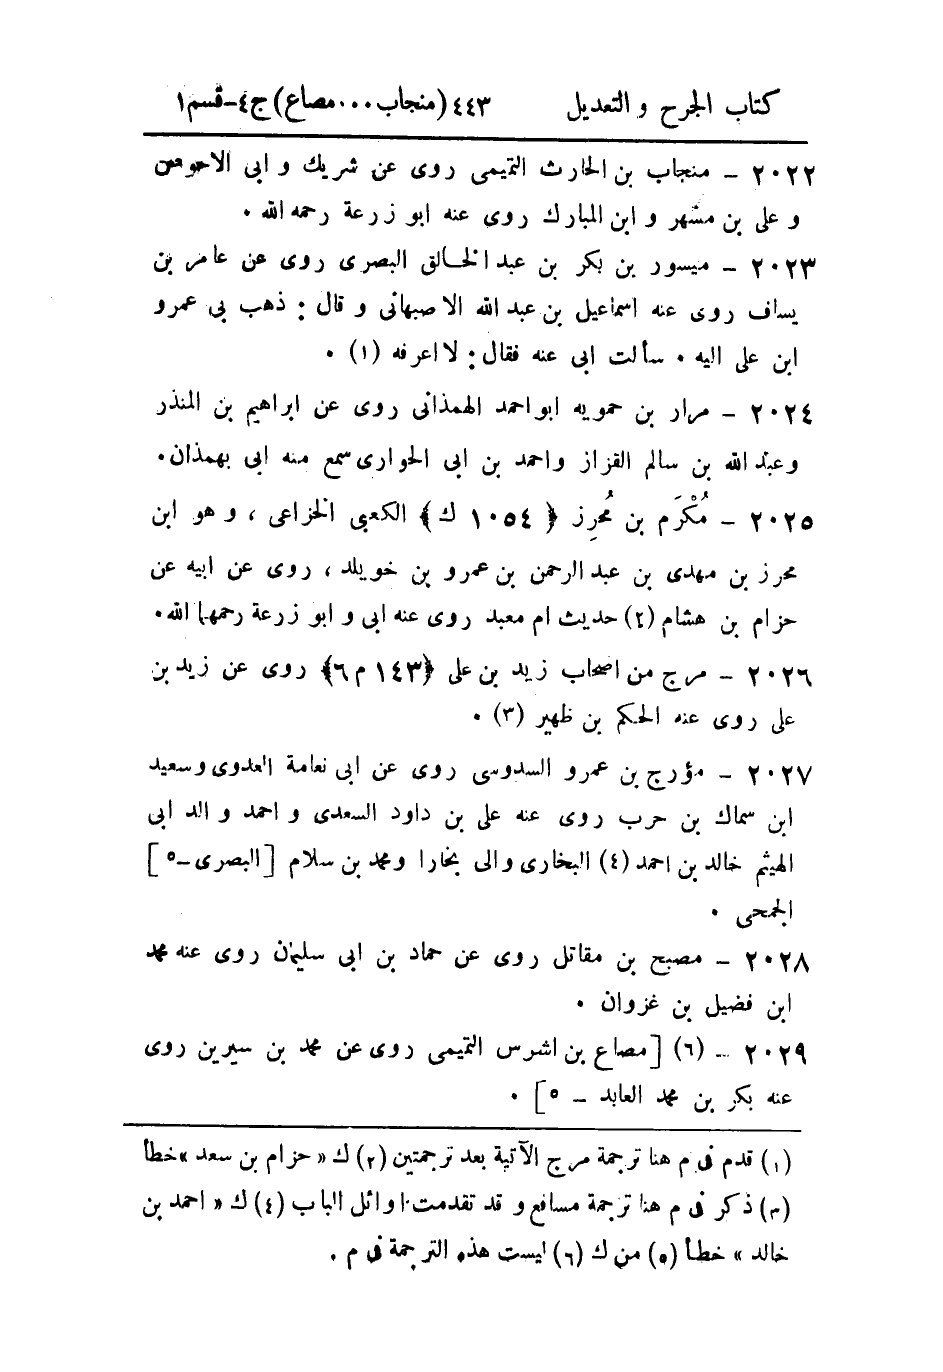 كتاب الجرح و التعديل ٤٤٣ (منجاب ٠٠٠ مصاع) ج٤-قسم١
٢٠٢٢ - منجاب بن الحارث التميمى روى عن شريك و ابى الاحوص
و على بن مسهر و ابن المبارك روى عنه ابو زرعة رحمه الله .
٢٠٢٣ - ميسور بن بكر بن عبد الخالق البصرى روى عن عامر بن
يساف روى عنه اسماعيل بن عبد الله الاصبهانى و قال : ذهب بى عمرو
ابن على اليه . سألت ابى عنه فقال : لا اعرفه (١) .
٢٠٢٤ - مرار بن حمويه ابو احمد الهمذانى روى عن ابراهيم بن المنذر
وعبد الله بن سالم القزاز واحمد بن ابى الحوارى سمع منه ابى بهمذان.
٢٠٢٥ - مُكْرَم بن مُحرِز ﴿ ١٠٥٤ ك﴾ الكعبى الخزاعى ، و هو ابن
محرز بن مهدى بن عبد الرحمن بن عمرو بن خويلد ، روى عن ابيه عن
حزام بن هشام (٢) حديث ام معبد روى عنه ابى و ابو زرعة رحمهما الله.
٢٠٢٦ - مرج من اصحاب زيد بن على ﴿١٤٣ م ٦﴾ روى عن زيد بن
على روى عنه الحكم بن ظهير (٣) .
٢٠٢٧ - مؤرج بن عمرو السدوسى روى عن ابى نعامة العدوى وسعيد
ابن سماك بن حرب روى عنه على بن داود السعدى و احمد و الد ابى
الهيثم خالد بن احمد (٤) البخارى والى بخارا ومحمد بن سلام [البصرى-٥]
الجمحى .
٢٠٢٨ - مصبح بن مقاتل روى عن حماد بن ابى سليمان روى عنه محمد
ابن فضيل بن غزوان .
٢٠٢٩ - (٦) [مصاع بن اشرس التميمى روى عن محمد بن سيرين روى
عنه بكر بن محمد العابد - ٥] .
(١) قدم فى م هنا ترجمة مرج الآتية بعد ترجمتين (٢) ك « حزام بن سعد » خطأ
(٣) ذكر فى م هنا ترجمة مسافع و قد تقدمت اوائل الباب (٤) ك « احمد بن
خالد » خطأ (٥) من ك (٦) ليست هذه الترجمة فى م .